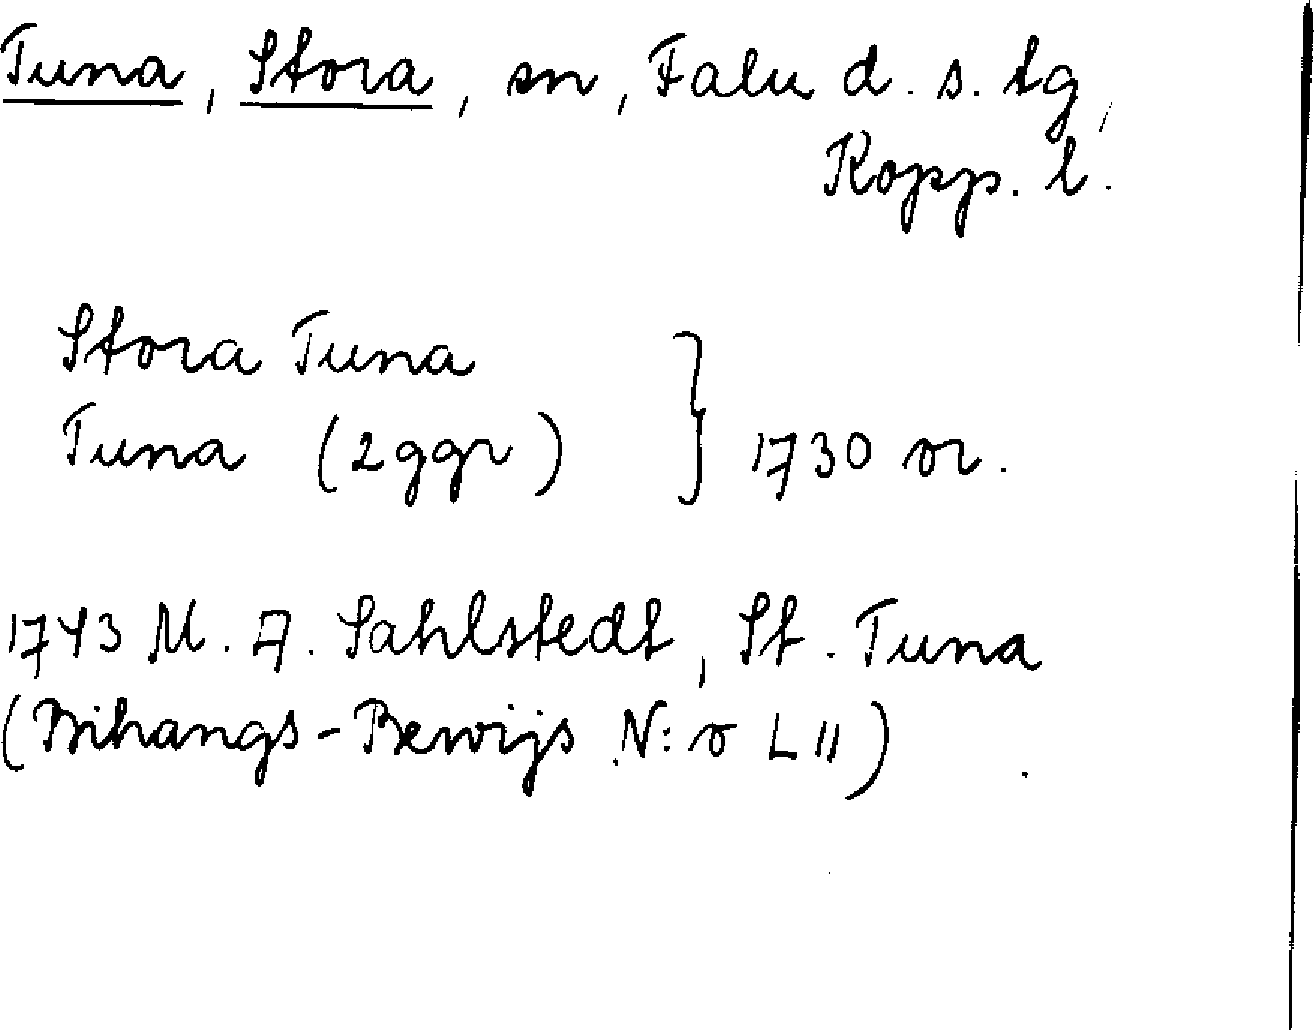 Tuna, Stora, sn, Falu d. s. tg,
Kopp. l.
Stora Tuna
Tuna (2 ggr) } 1730 or.
1743 M. A. Sahlstedt, St. Tuna
(Bihangs-Bewijs N:o LII)